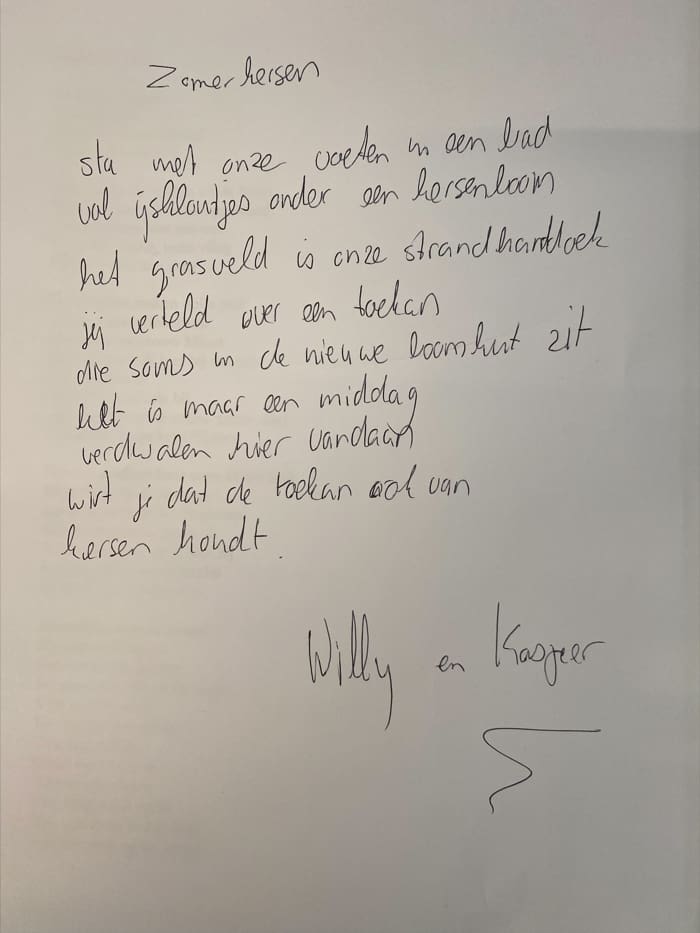 Zomerkersen
sta met onze voeten in een bad
vol ijsklontjes onder een kersenboom
het grasveld is onze strandhanddoek
jij verteld over een toekan
die soms in de nieuwe boomhut zit
het is maar een middag
verdwalen hier vandaan
wist je dat de toekan ook van
kersen houdt.
Willy en Kasper